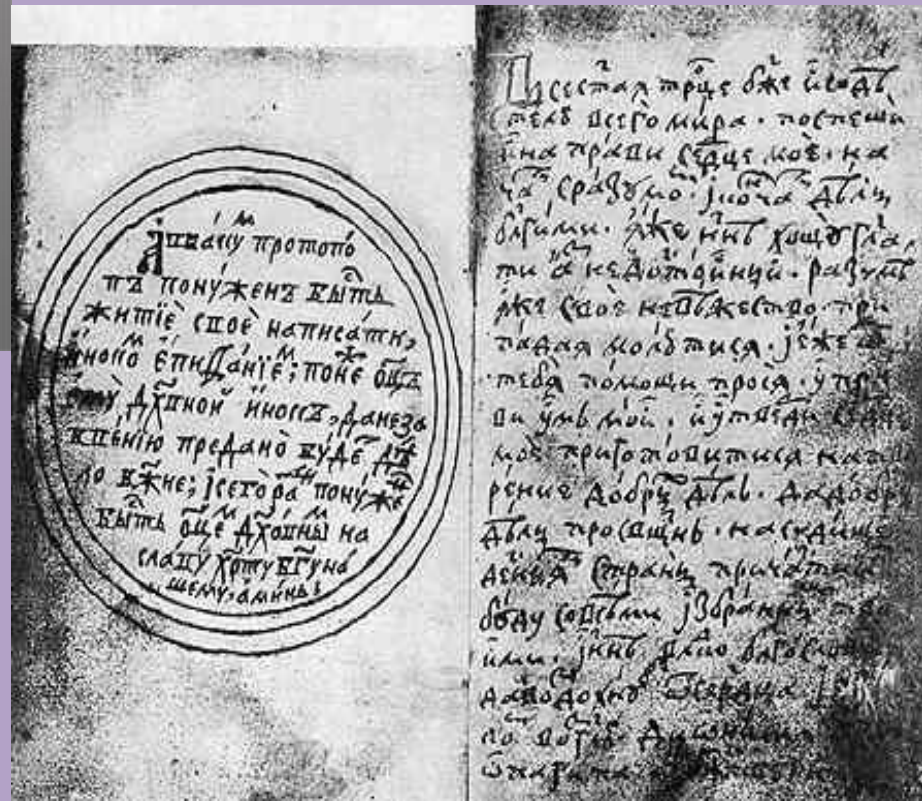 Аввакꙋм протопо
пъ понꙋженъ бы́сть
житїѐ своѐ написати,
инокомъ Епифанїемъ; понеж ѻц҃ъ
емꙋ̀ дх҃овной инокъ, да не за
бвенїю предано̀ бꙋде дѣ
ло бж҃ие; ј сего ра́ди понꙋже
бысть ѻц҃емъ дх҃овнымъ на
славꙋ хр҃тꙋ бг҃ꙋ на
шемꙋ, аминь.
Всест҃ая трⷪ҇це бж҃е и содѣ
телю всего̀ мира. поспеши
и направи се́рдце моѐ. на
ча́ть с разумоⷨ. ј коча́ть дѣлы
бл҃гими. я́же нн҃ѣ хощꙋ̀ гла
ти а҆зъ недостойный. разумѣя
же своѐ невѣжество. при
падая молю́ тися. ј еже ѿ
тебя̀ помощи прося̀. упра
ви ꙋ́мъ мой. и ꙋтверди се́рдце
моѐ приготовитися на тво
рение добрыⷯ дѣлъ. да добры
дѣлы просвѣщенъ. на сꙋдище
страны причастникъ
бꙋдꙋ со всѣми јзбранными тво
ими. ј нн҃ѣ влⷣко бл҃гослови
да воздохнꙋвъ ѿ сердца